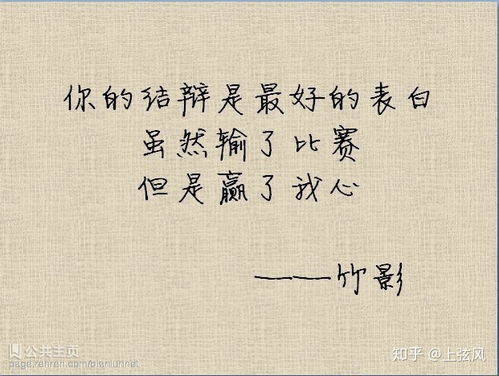 你的结辩是最好的表白
虽然输了比赛
但是赢了我心
——竹影
公共主页
知乎 @上弦风